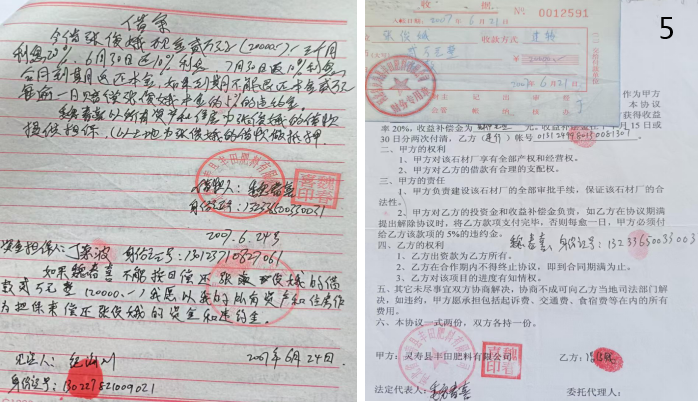 借条
今借张俊娥现金贰万元（20000），三个月
利息20%，6月30日返10%利息，7月30日返10%利息，
合同到期返还本金，如果到期不能返还本金贰万元
每逾一日赔偿张俊娥本金的5%的违约金。
魏春喜以所有资产和住房为张俊娥的借款
担保
借款人：魏春喜
2007.6.24号
资金担保人：丁春波 身份证号：
如果魏春喜不能按日偿还张俊娥的借
款贰万元整（20000.）我愿以我的所有资产和住房作
为担保来偿还张俊娥的资金和违约金。
见证人：
2007年6月24日
身份证号：130227821009021
5
收据
No 0012591
入账日期：2007年6月21日
张俊娥 收款方式
贰万元整
￥20000
2007年6月21日
财务专用章
作为甲方
本协议
获得收益
率20%，收益补偿金为
月15日或
30日分两次付清，乙方（建行）帐号
二、甲方的权利
1、甲方对该石材厂享有全部产权和经营权。
2、甲方对乙方的借款有合理的支配权。
三、甲方的责任
1、甲方负责建设该石材厂的全部审批手续，保证该石材厂的合
法性。
2、甲方对乙方的投资金和收益补偿金负责，如乙方在协议期满
提出解除协议时，将乙方款项支付完毕，否则每逾一日，甲方必须付
给乙方该款项的5%的违约金。
四、乙方的权利
魏春喜，身份证号：132336500033003
1、乙方出资款为乙方所有。
2、乙方在合作期内不得终止协议，即到合同期满为止。
3、乙方对该项目的进度有知情权。
五、其它未尽事宜双方协商解决，协商不成可向乙方当地司法部门
解决，如违约，甲方愿承担包括起诉费、交通费、食宿费等在内的所有
费用。
六、本协议一式两份，双方各持一份。
甲方：灵寿县丰田肥料有限公司 乙方：
法定代表人：魏春喜 委托代理人：